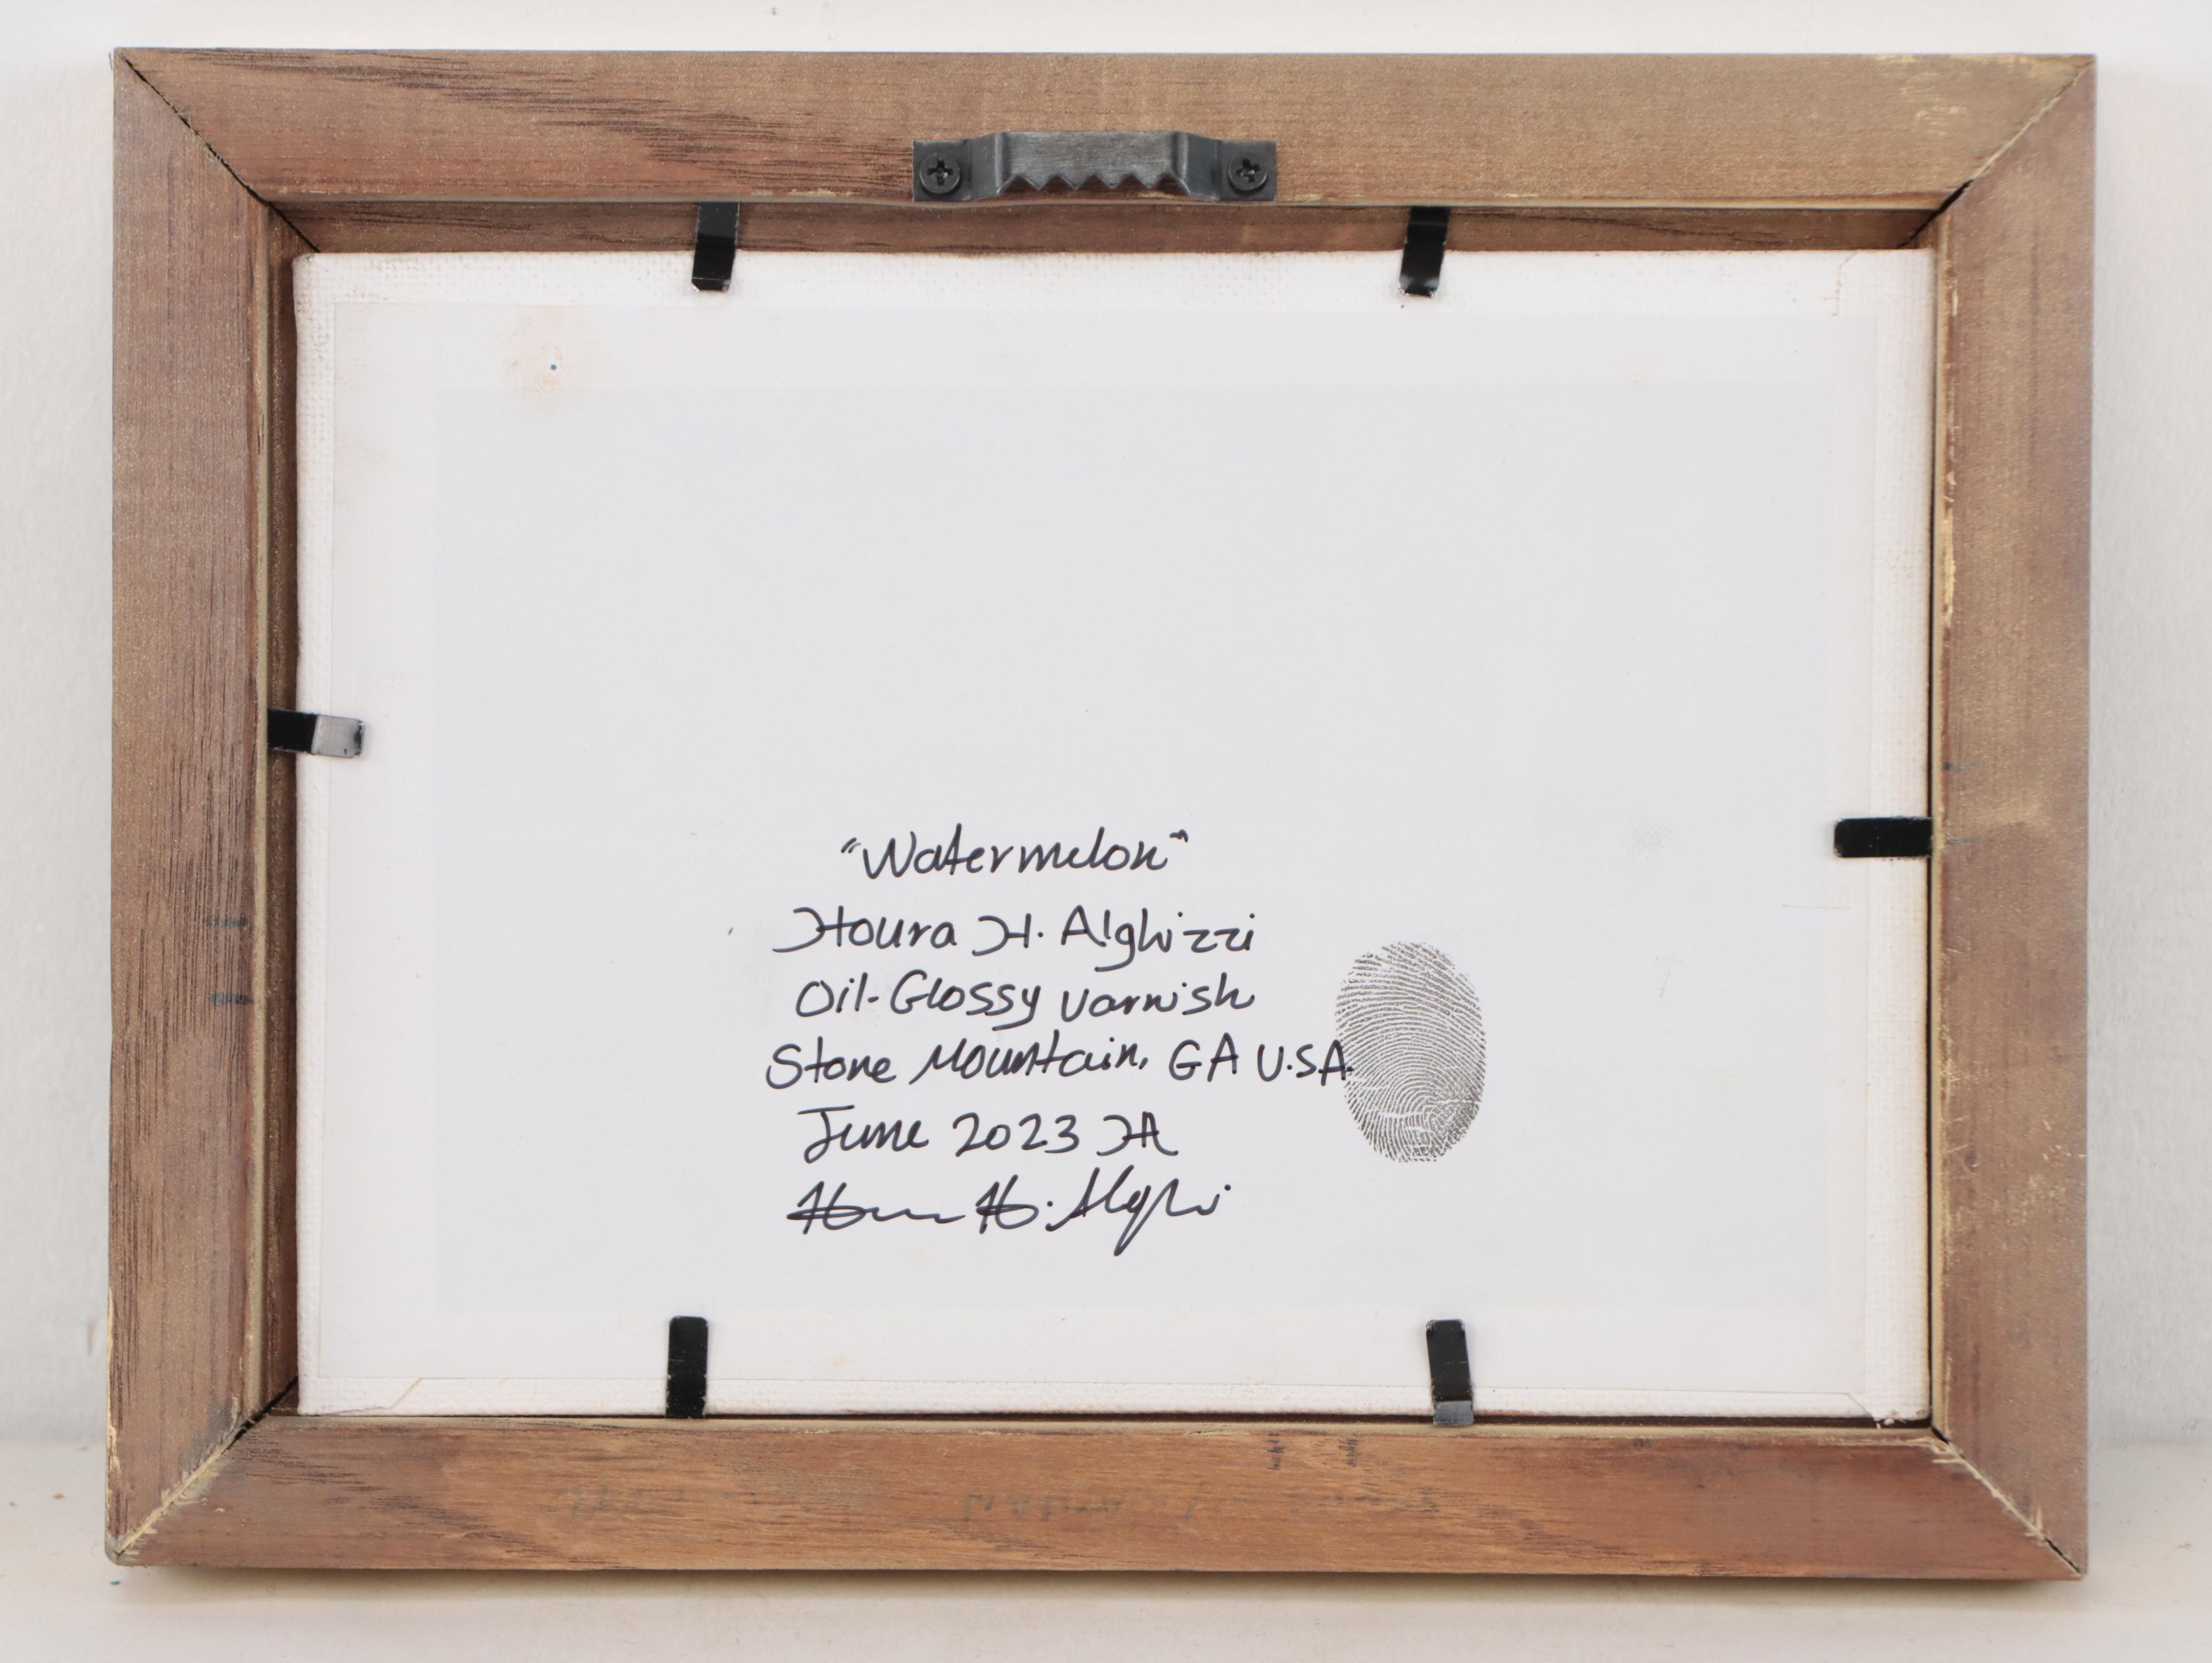 "Watermelon"
Houra H. Alghizzi
Oil-Glossy varnish
Stone Mountain, GA U.S.A.
June 2023 HA